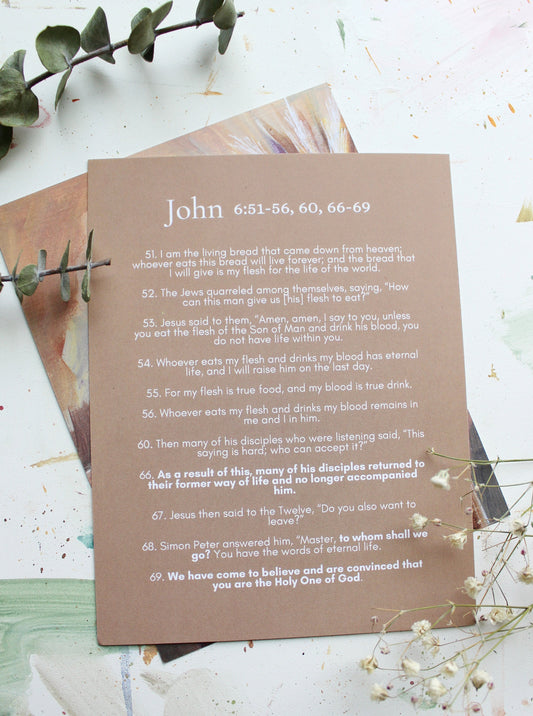 John 6:51-56, 60, 66-69
51. I am the living bread that came down from heaven;
whoever eats this bread will live forever; and the bread that
I will give is my flesh for the life of the world.
52. The Jews quarreled among themselves, saying, "How
can this man give us [his] flesh to eat?"
53. Jesus said to them, "Amen, amen, I say to you, unless
you eat the flesh of the Son of Man and drink his blood, you
do not have life within you.
54. Whoever eats my flesh and drinks my blood has eternal
life, and I will raise him on the last day.
55. For my flesh is true food, and my blood is true drink.
56. Whoever eats my flesh and drinks my blood remains in
me and I in him.
60. Then many of his disciples who were listening said, "This
saying is hard; who can accept it?"
66. As a result of this, many of his disciples returned to
their former way of life and no longer accompanied
him.
67. Jesus then said to the Twelve, "Do you also want to
leave?"
68. Simon Peter answered him, "Master, to whom shall we
go? You have the words of eternal life.
69. We have come to believe and are convinced that
you are the Holy One of God.